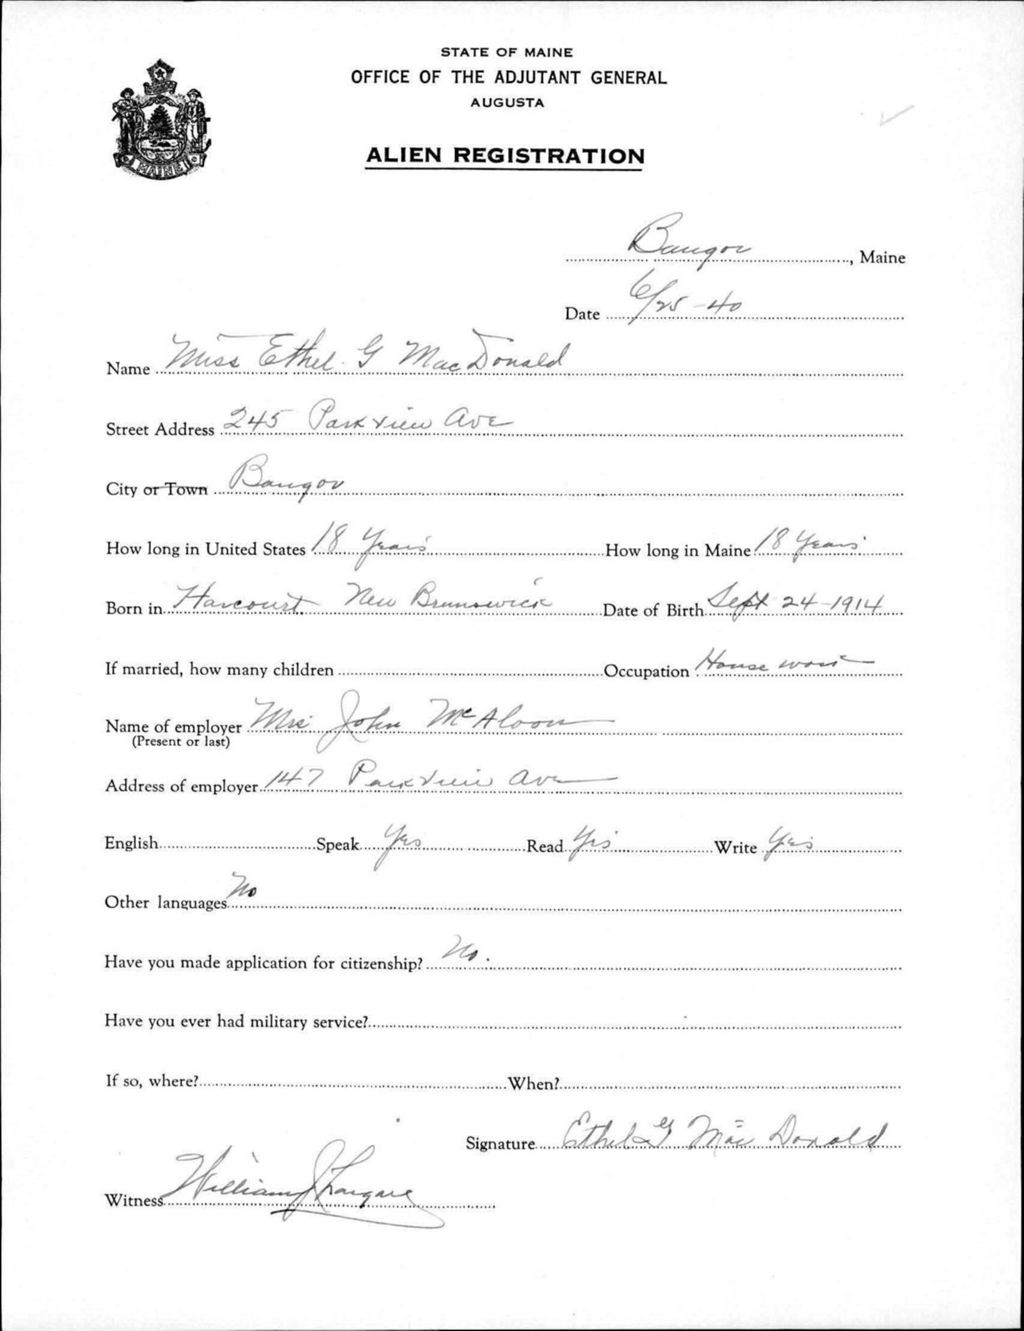 STATE OF MAINE
OFFICE OF THE ADJUTANT GENERAL
AUGUSTA
ALIEN REGISTRATION
MAINE
Bangor, Maine
Date 6/25-40
Name Miss Ethel G MacDonald
Street Address 245 Parkview Ave
City or Town Bangor
How long in United States 18 Years How long in Maine 18 Years
Born in Harcourt New Brunswick Date of Birth Sept 24-1914
If married, how many children Occupation House work
Name of employer Mrs John McAloon
(Present or last)
Address of employer 147 Parkview Ave
English Speak Yes Read Yes Write Yes
Other languages No
Have you made application for citizenship? No.
Have you ever had military service?
If so, where? When?
Signature Ethel G MacDonald
Witness William J